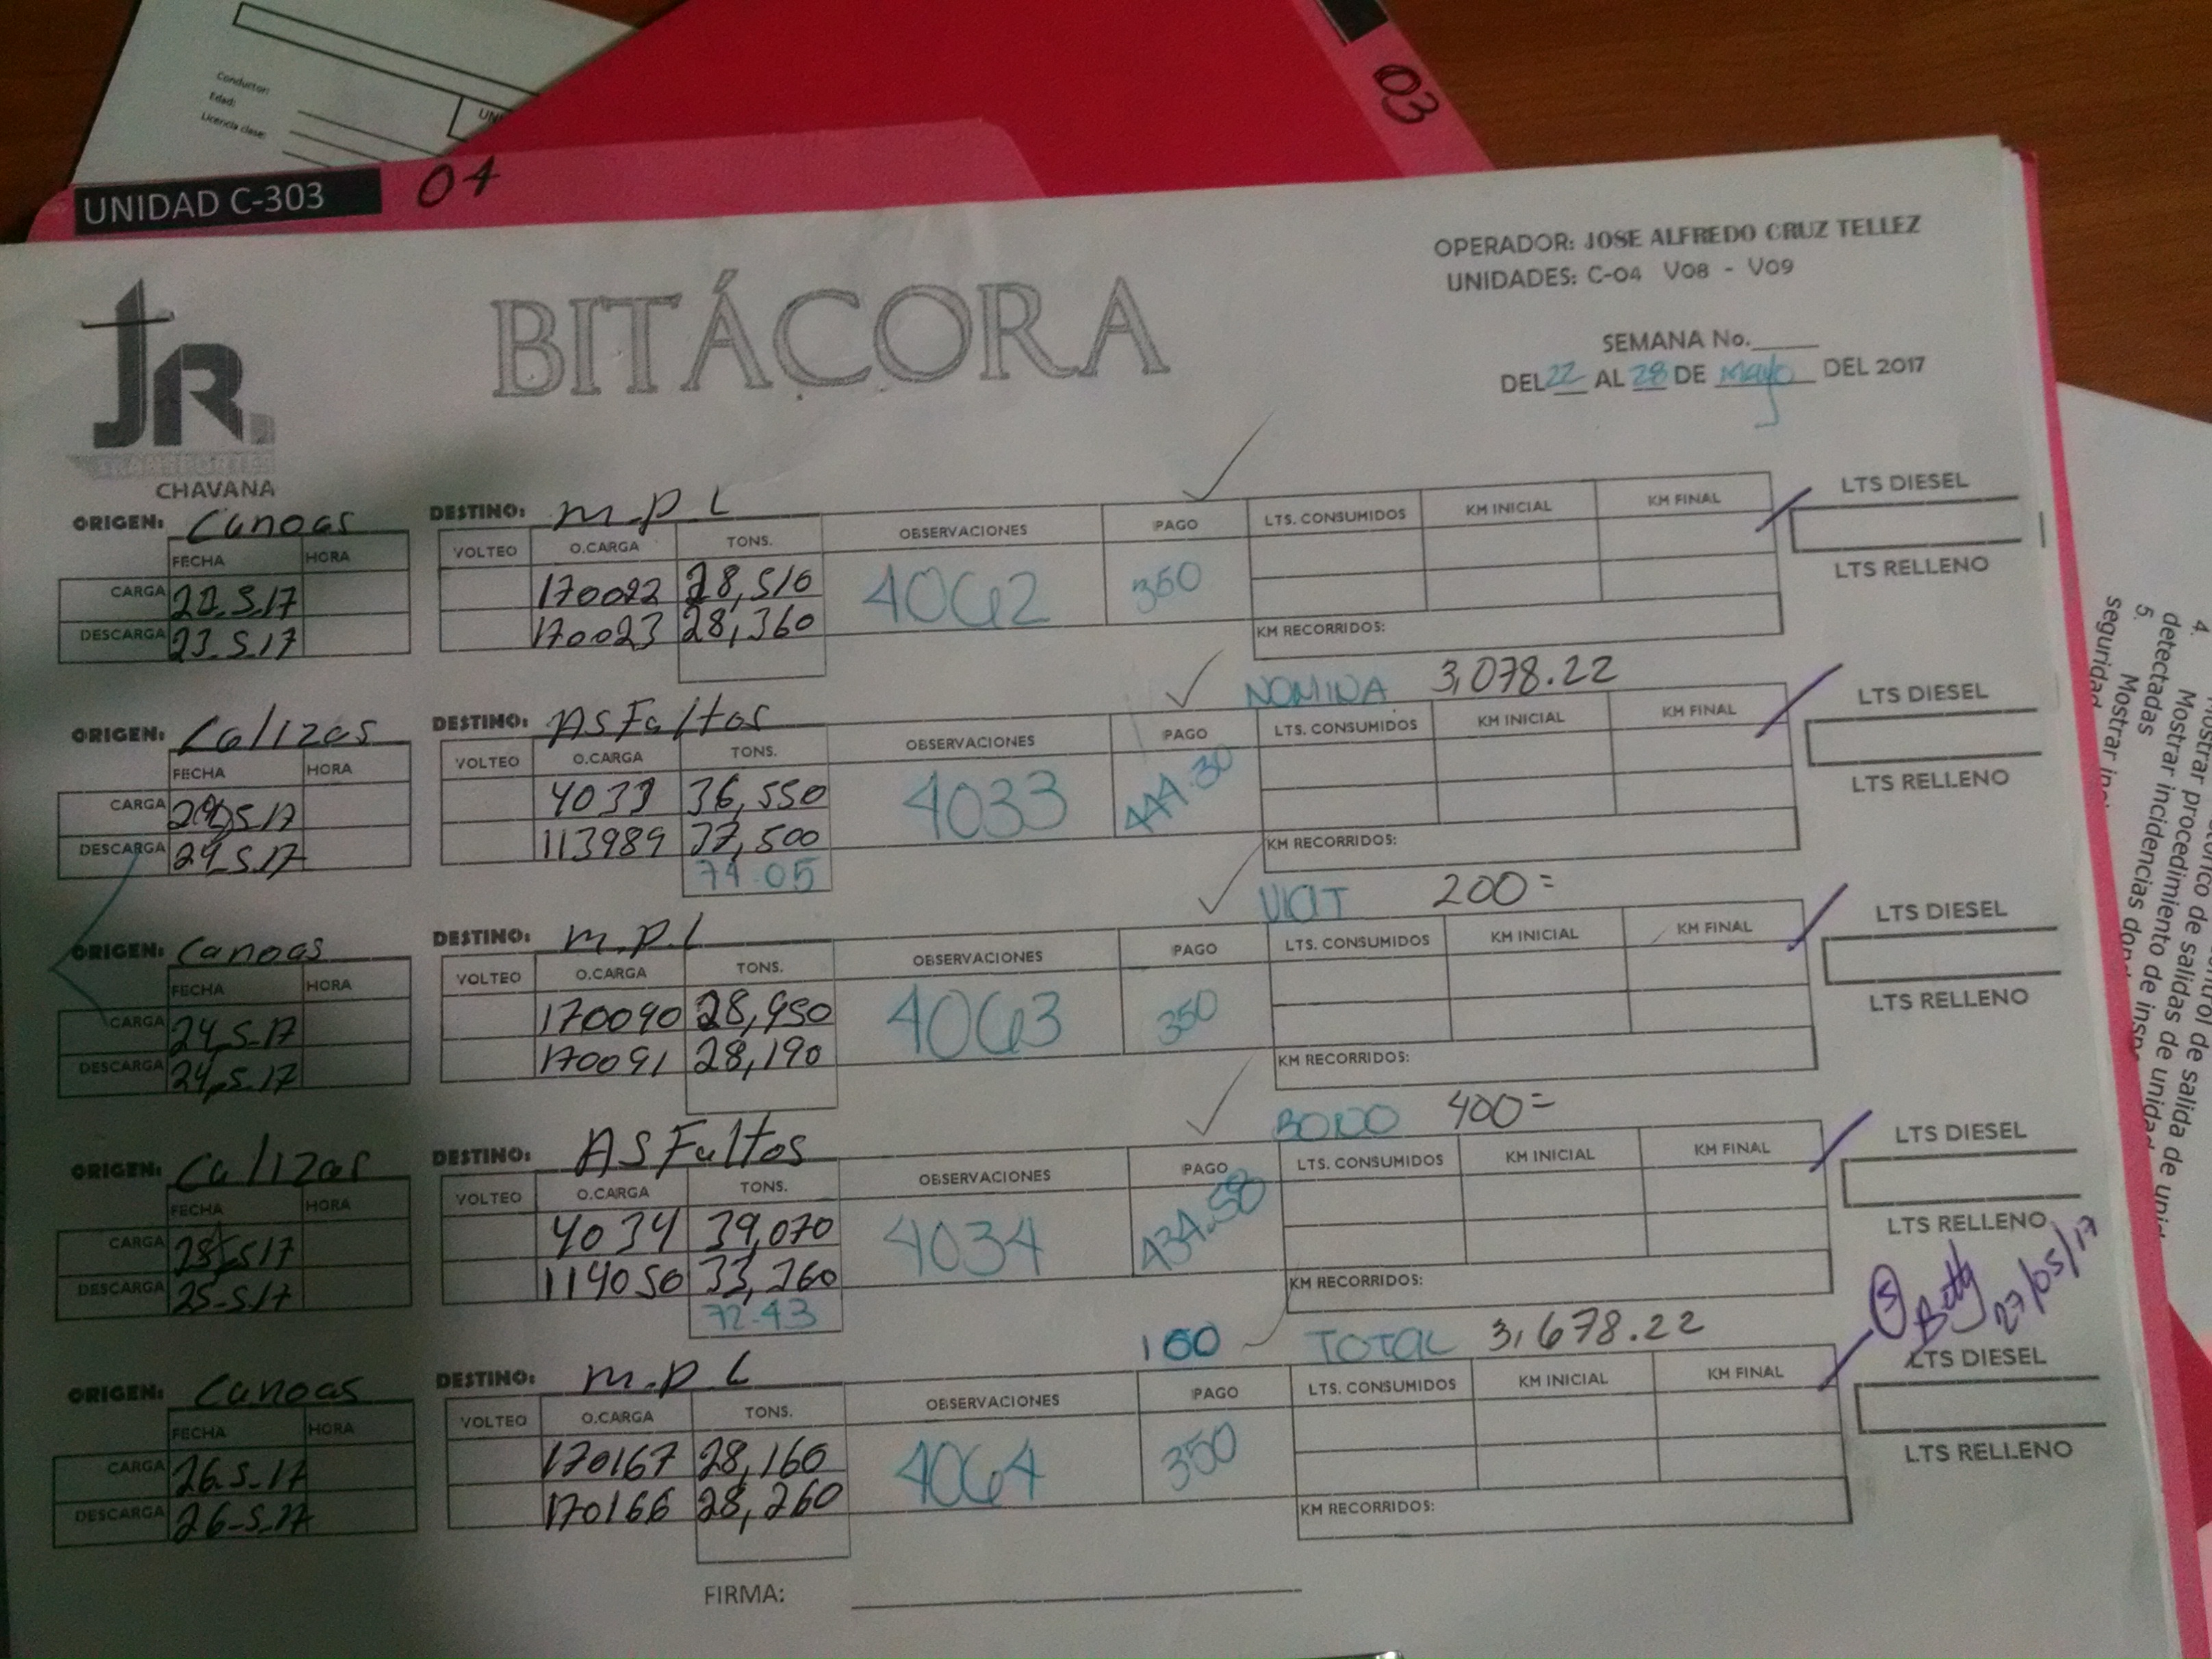 Conductor:
Edad:
Licencia clase:
UN
03
UNIDAD C-303 04
JR.
CHAVANA
BITÁCORA
OPERADOR: JOSE ALFREDO CRUZ TELLEZ
UNIDADES: C-04 V08 - V09
SEMANA No.
DEL 22 AL 28 DE Mayo DEL 2017
ORIGEN: Canoas DESTINO: m.p.L
FECHA HORA VOLTEO O.CARGA TONS. OBSERVACIONES PAGO LTS. CONSUMIDOS KM INICIAL KM FINAL LTS DIESEL
CARGA 22.5.17 170022 28,510 4062 350
DESCARGA 23.5.17 170023 28,360
KM RECORRIDOS: LTS RELLENO
NOMINA 3,078.22
ORIGEN: Calizas DESTINO: ASFaltos
FECHA HORA VOLTEO O.CARGA TONS. OBSERVACIONES PAGO LTS. CONSUMIDOS KM INICIAL KM FINAL LTS DIESEL
CARGA 4033 36,550 4033 444.30
DESCARGA 24.5.17 113989 37,500
74.05
KM RECORRIDOS: LTS RELLENO
200=
ORIGEN: Canoas DESTINO: m.p.L
FECHA HORA VOLTEO O.CARGA TONS. OBSERVACIONES PAGO LTS. CONSUMIDOS KM INICIAL KM FINAL LTS DIESEL
CARGA 24.5.17 170090 28,950 4063 350
DESCARGA 24.5.17 170091 28,190
KM RECORRIDOS: LTS RELLENO
BONO 400=
ORIGEN: Calizas DESTINO: ASFaltos
FECHA HORA VOLTEO O.CARGA TONS. OBSERVACIONES PAGO LTS. CONSUMIDOS KM INICIAL KM FINAL LTS DIESEL
CARGA 25.5.17 4034 39,070 4034 434.58
DESCARGA 25-5/17 114050 33,360
72.43
KM RECORRIDOS: LTS RELLENO
Betty 27/05/17
100 TOTAL 3,678.22
ORIGEN: Canoas DESTINO: m.p.L
FECHA HORA VOLTEO O.CARGA TONS. OBSERVACIONES PAGO LTS. CONSUMIDOS KM INICIAL KM FINAL LTS DIESEL
CARGA 26.5.17 170167 28,160 4064 350
DESCARGA 26-5-17 170166 28,260
KM RECORRIDOS: LTS RELLENO
FIRMA:
4.
Mostrar procedimiento de salidas de unid
detectadas
5. Mostrar incidencias de insp
seguridad